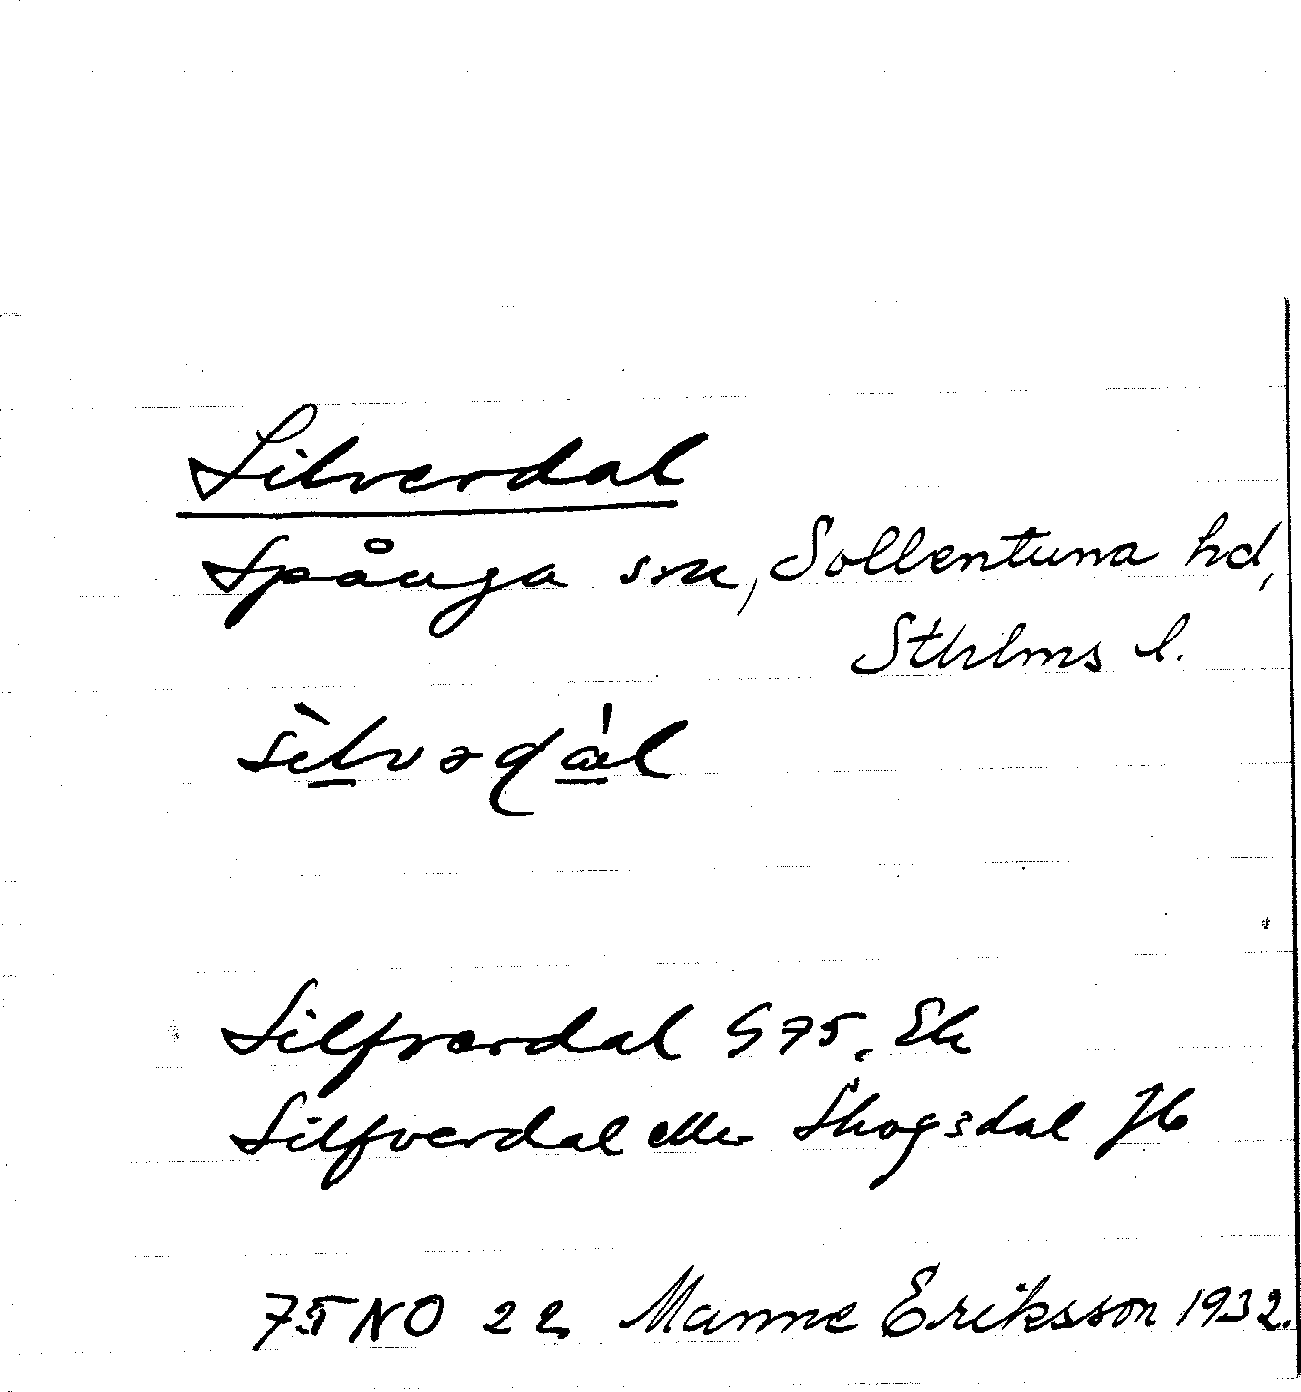 Silverdal
Spånga sn, Sollentuna hd,
Sthlms l.
Silfverdal G75. Ek
Silfverdal eller Skogsdal Jb
75 NO 22 Manne Eriksson 1932.